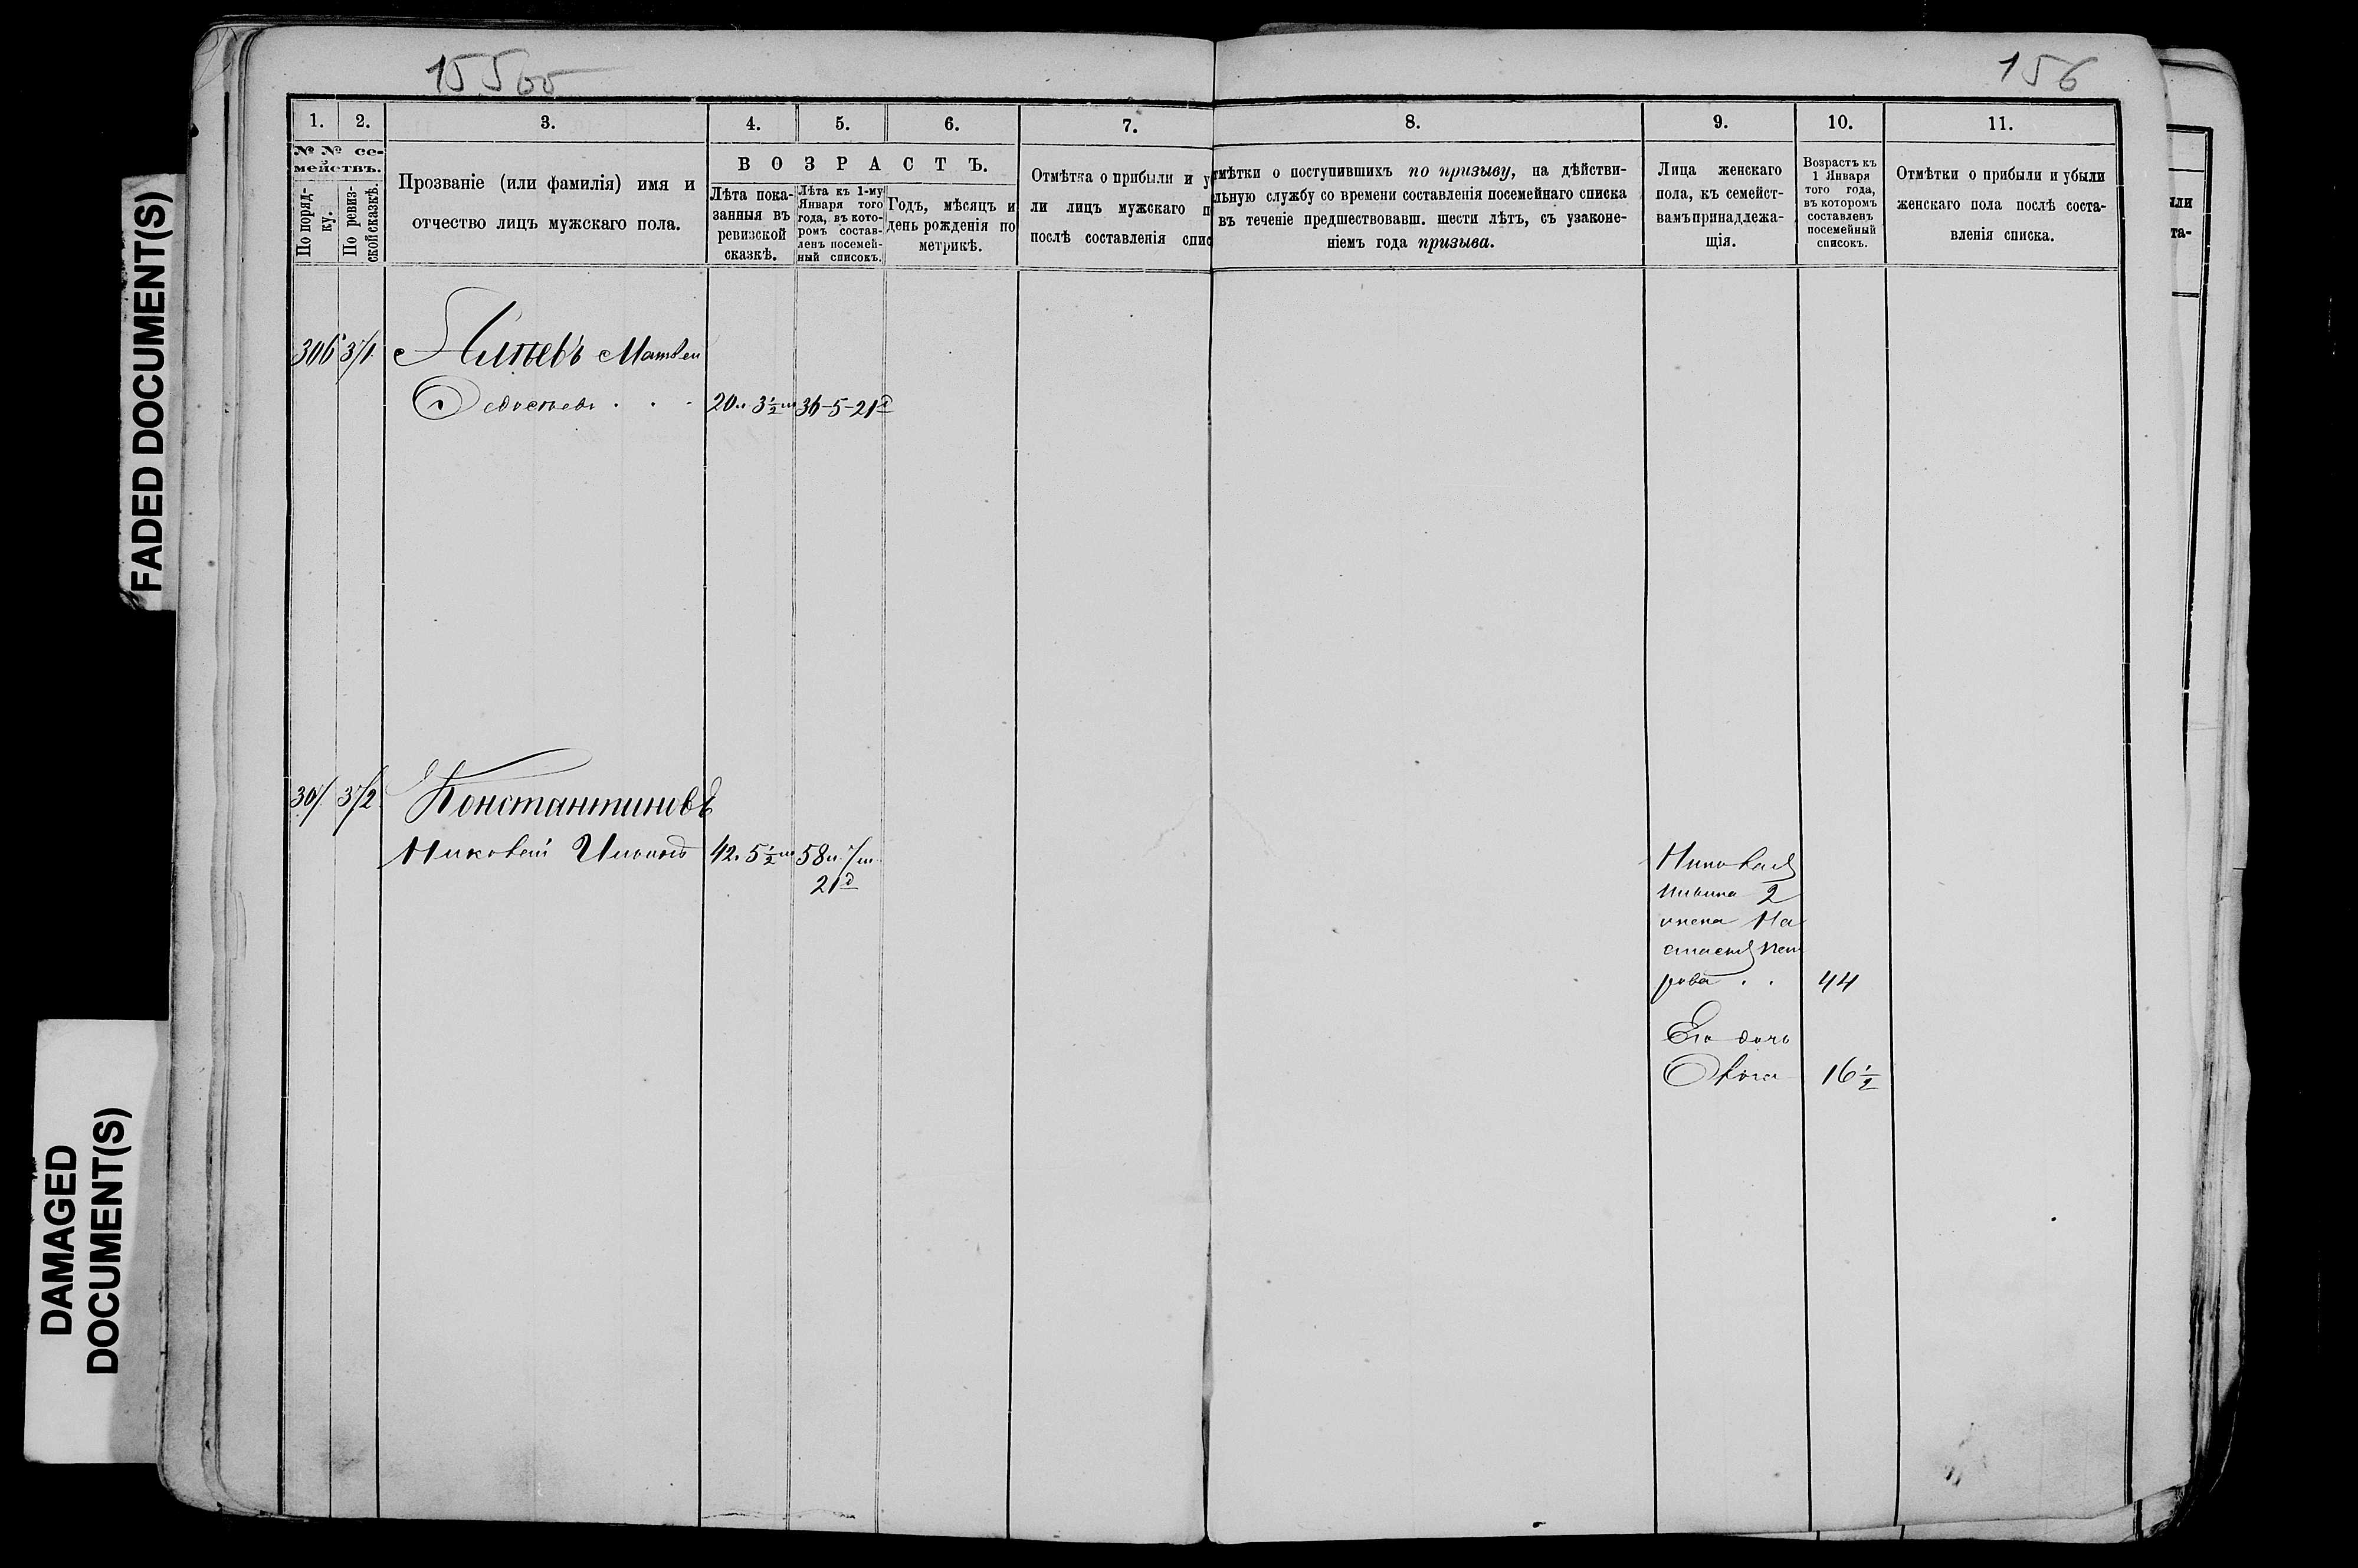 FADED DOCUMENT(S)
DAMAGED
DOCUMENT(S)
155об
156
1.
2.
3.
4.
5.
6.
7.
8.
9.
10.
11.
№ № се-
мействъ.
По поряд-
ку.
По ревиз-
ской сказкѣ.
Прозваніе (или фамилія) имя и
отчество лицъ мужскаго пола.
ВОЗРАСТЪ.
Лѣта пока-
занныя въ
ревизской
сказкѣ.
Лѣта къ 1-му
Января того
года, въ кото-
ромъ состав-
ленъ посемей-
ный списокъ.
Годъ, мѣсяцъ и
день рожденія по
метрикѣ.
Отмѣтка о прибыли и у
ли лицъ мужскаго п
послѣ составленія спис
тмѣтки о поступившихъ по призыву, на дѣйстви-
льную службу со времени составленія посемейнаго списка
въ теченіе предшествовавш. шести лѣтъ, съ узаконе-
ніемъ года призыва.
Лица женскаго
пола, къ семейст-
вамъ принадлежа-
щія.
Возрастъ къ
1 Января
того года,
въ которомъ
составленъ
посемейный
списокъ.
Отмѣтки о прибыли и убыли
женскаго пола послѣ соста-
вленія списка.
или
та-
306 371 Матвей
20 л 3½ м 36-5-21д
307 372 Константиновъ
42 л 5½ м 58 л 7 м
21д
2
жена На
стасья Пет
рова . . 44
Его дочь
16½